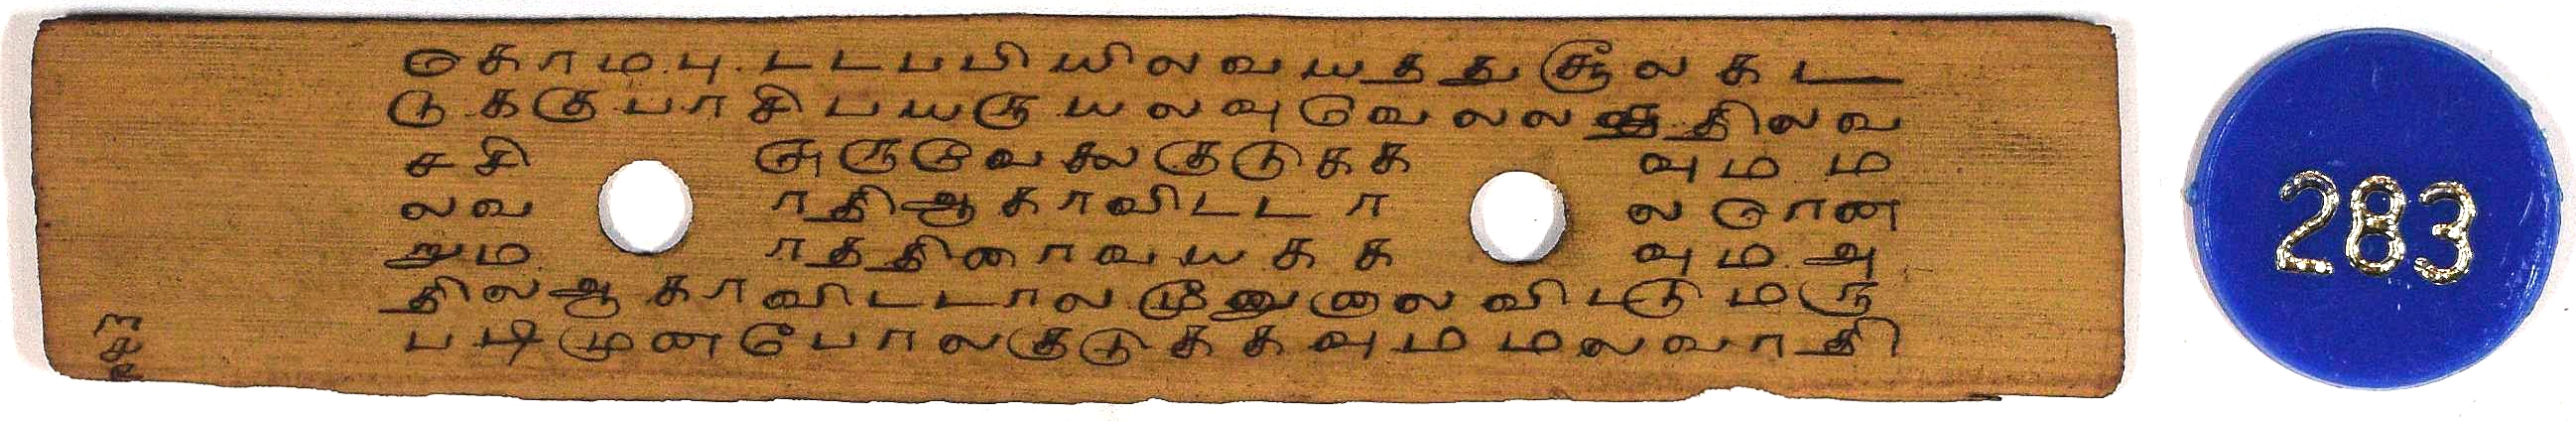 கொமபுடடபபியிலவயதது சூலகட
டுககுபாசிபயருயலவுவெலலத்திலவ
சசி ஞருவேகூகுடுகக வுமம
லவ ாதிஆகாவிடடா லொன
றும ாததினாவயகக வுமஅ
திலஆகாவிடடாலமூனுஞலைவிடடுமரு
படிமுனபோலகுடுககவுமமலவாதி
283